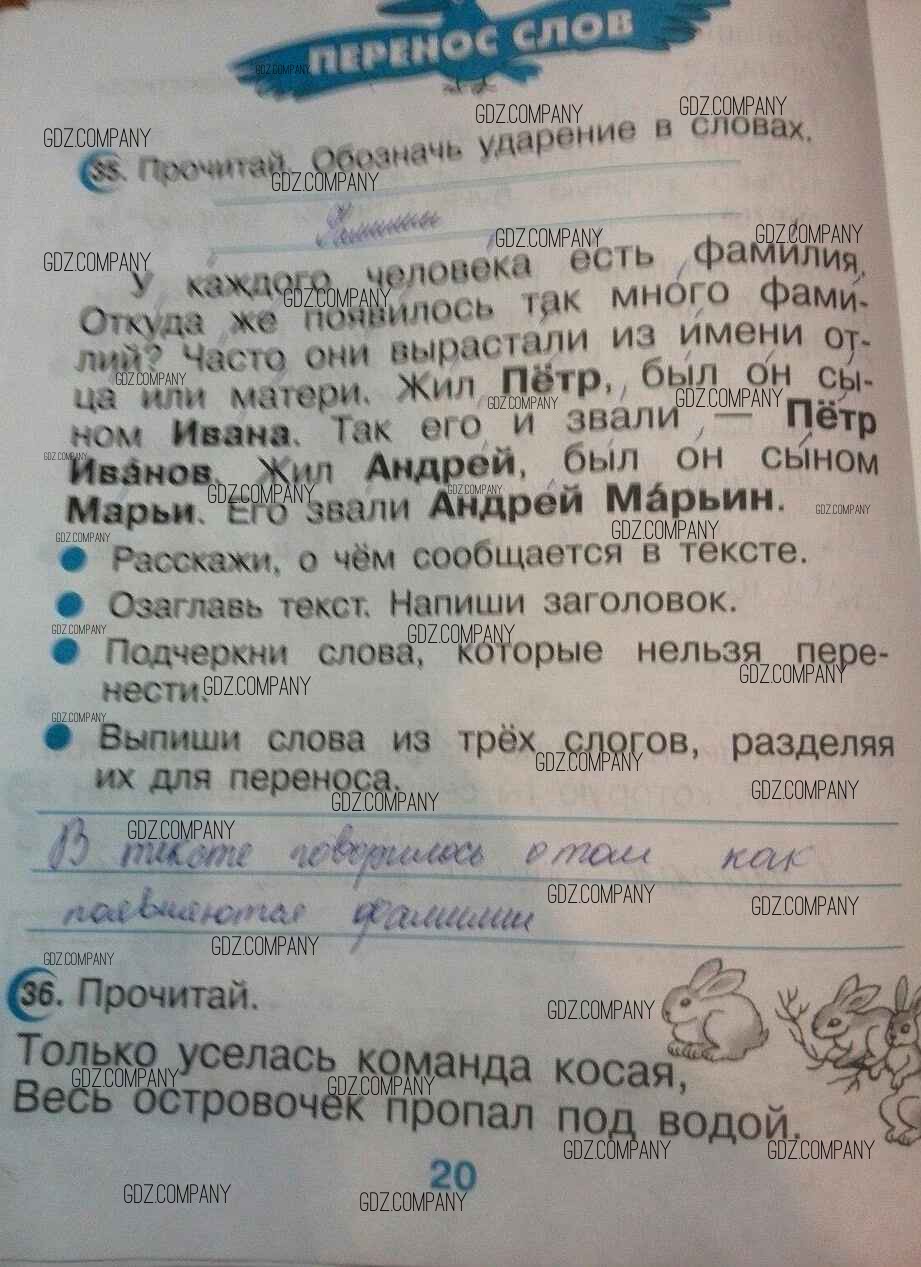 ПЕРЕНОС СЛОВ
35. Прочитай. Обозначь ударение в словах.
Фамилии
У каждого человека есть фами́лия.
Откуда же появилось так много фами-
лий? Часто они вырастали из имени от-
ца или матери. Жил Пётр, был он сы-
ном Ивана. Так его и звали — Пётр
Ива́нов. Жил Андрей, был он сыном
Марьи. Его звали Андрей Ма́рьин.
Расскажи, о чём сообщается в тексте.
Озаглавь текст. Напиши заголовок.
Подчеркни слова, которые нельзя пере-
нести.
Выпиши слова из трёх слогов, разделяя
их для переноса.
В тексте говорилось о том как
появляются фамилии
36. Прочитай.
Только уселась команда косая,
Весь островочек пропал под водой.
20
GDZ.COMPANY